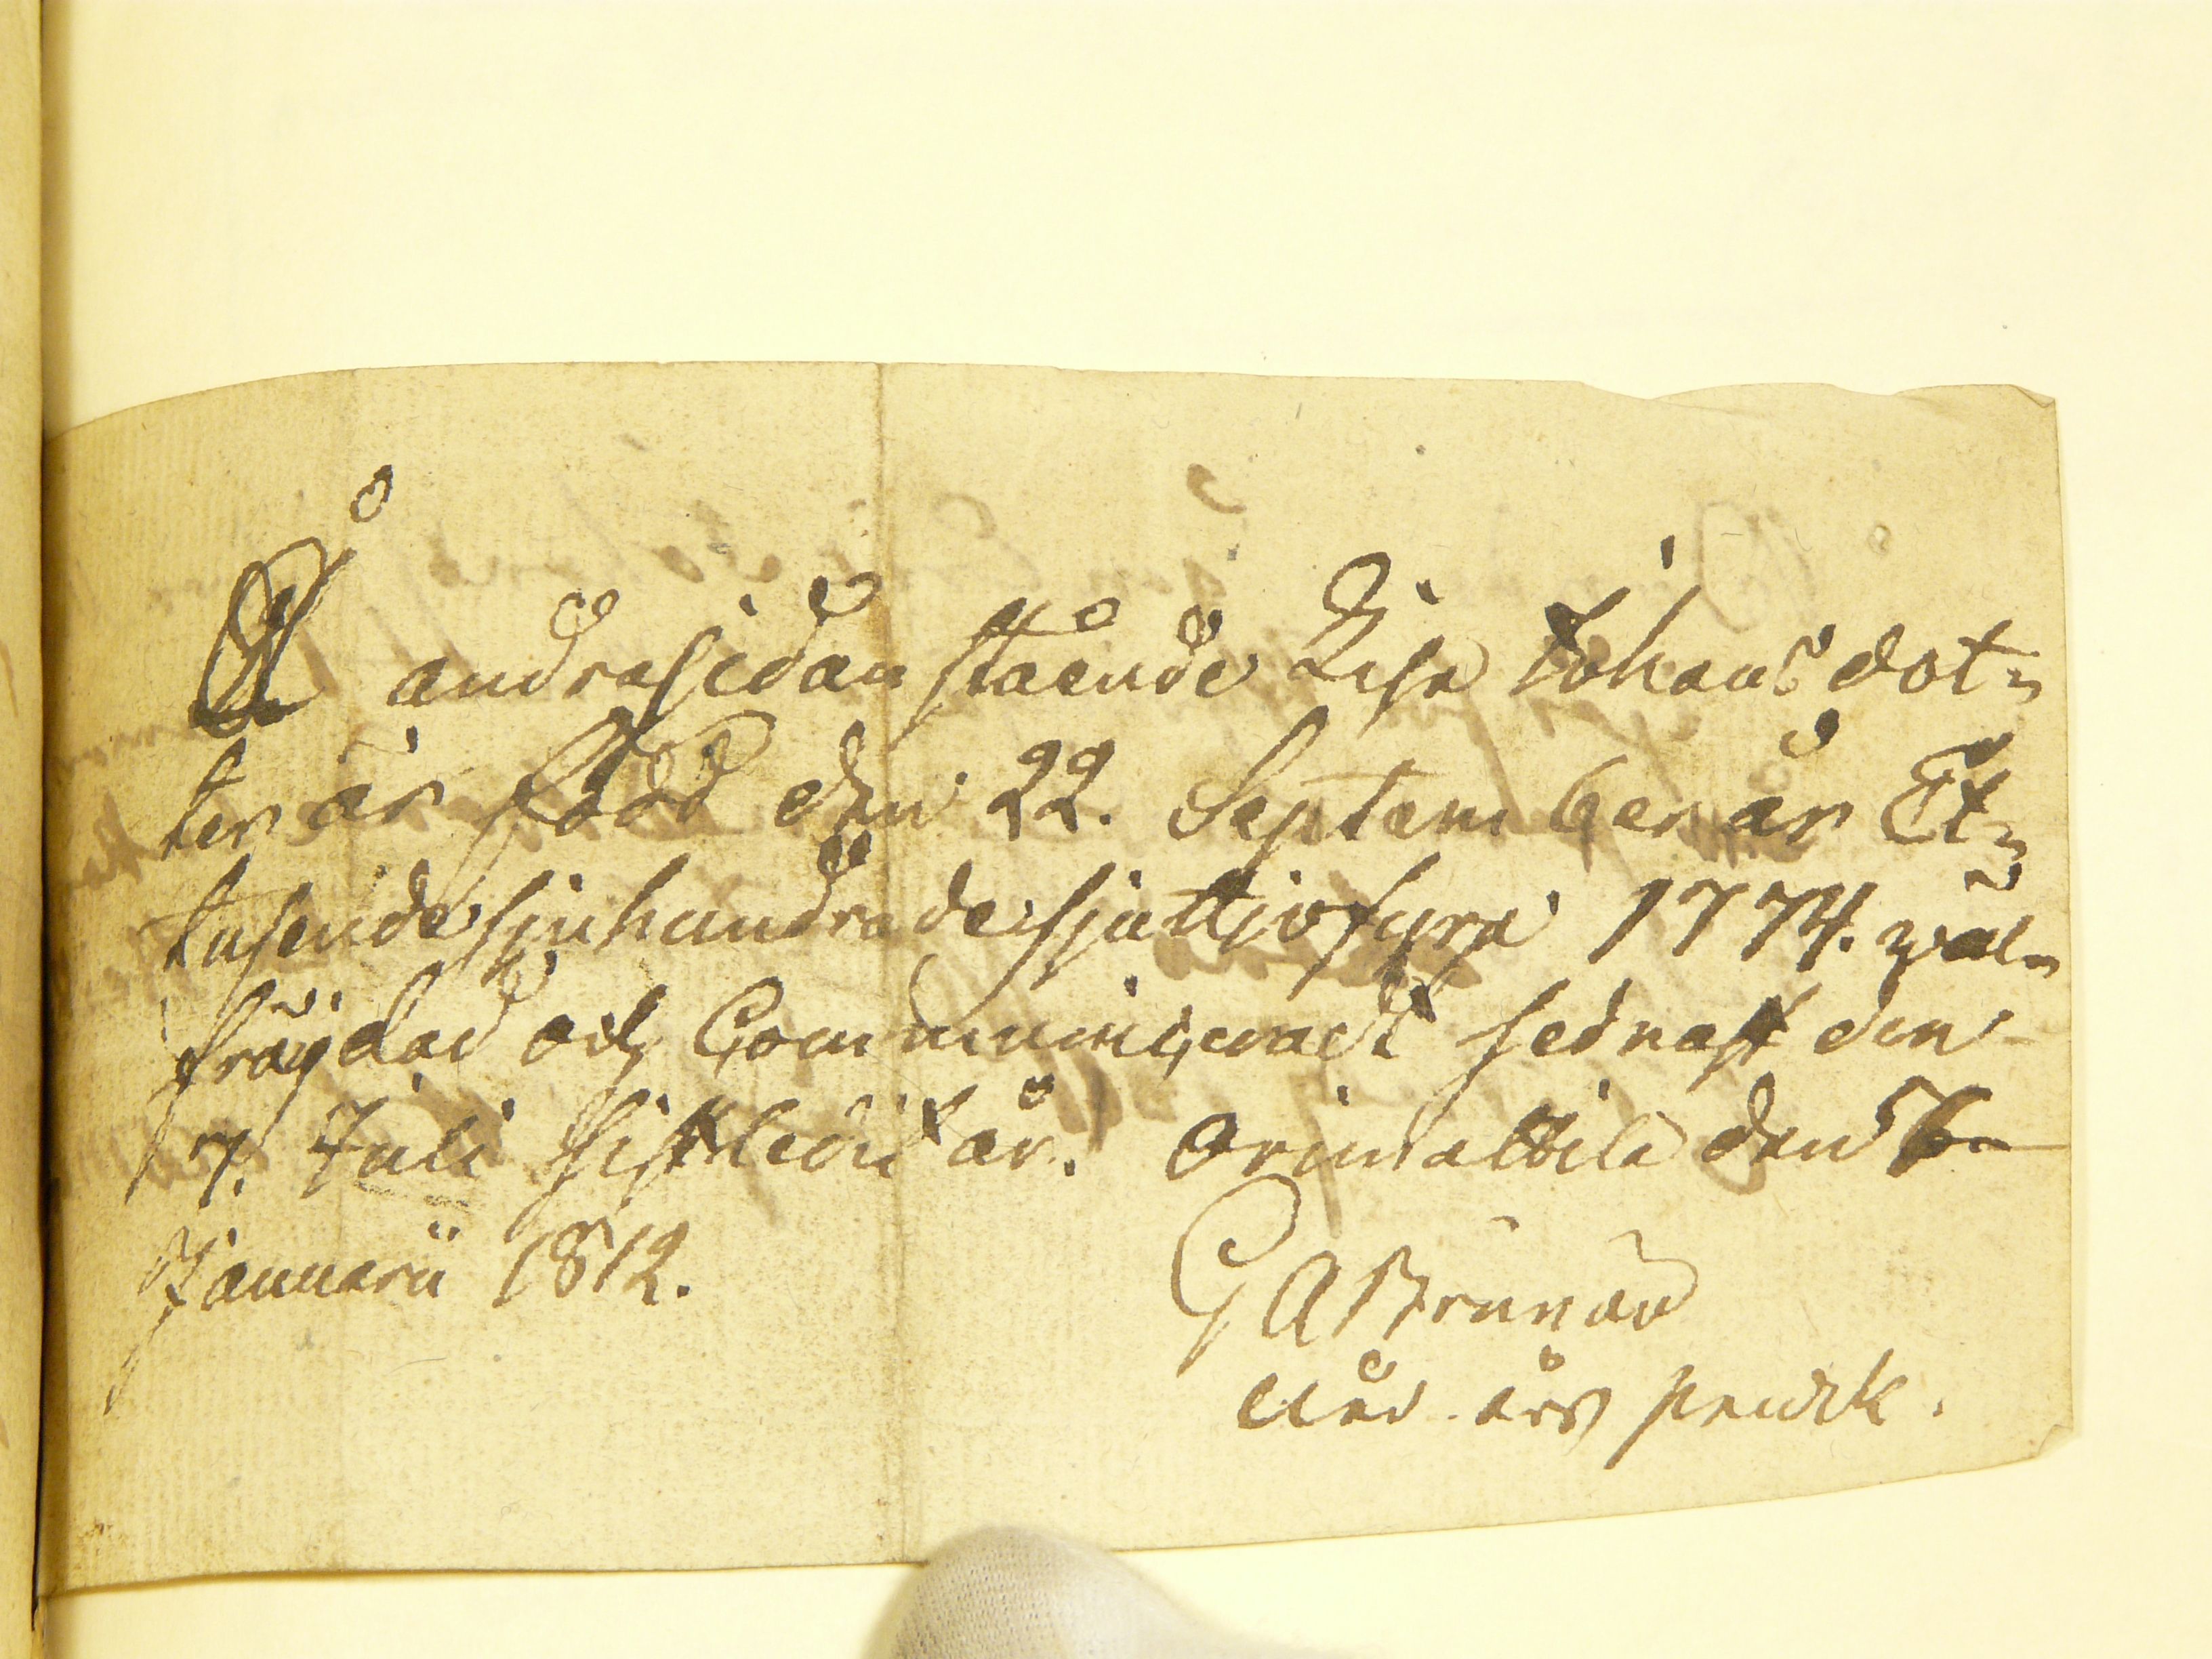 Å andra sidan stående Lisa Johans dot=
ter är född den 22. September år Et=
tusende sjuhundrade sjuttiofyra 1774. wäl=
frägdad och Communiceradt sednast den
7. Juli sistledit år. Orimattila den 6
Januarii 1812.
G A Brunou